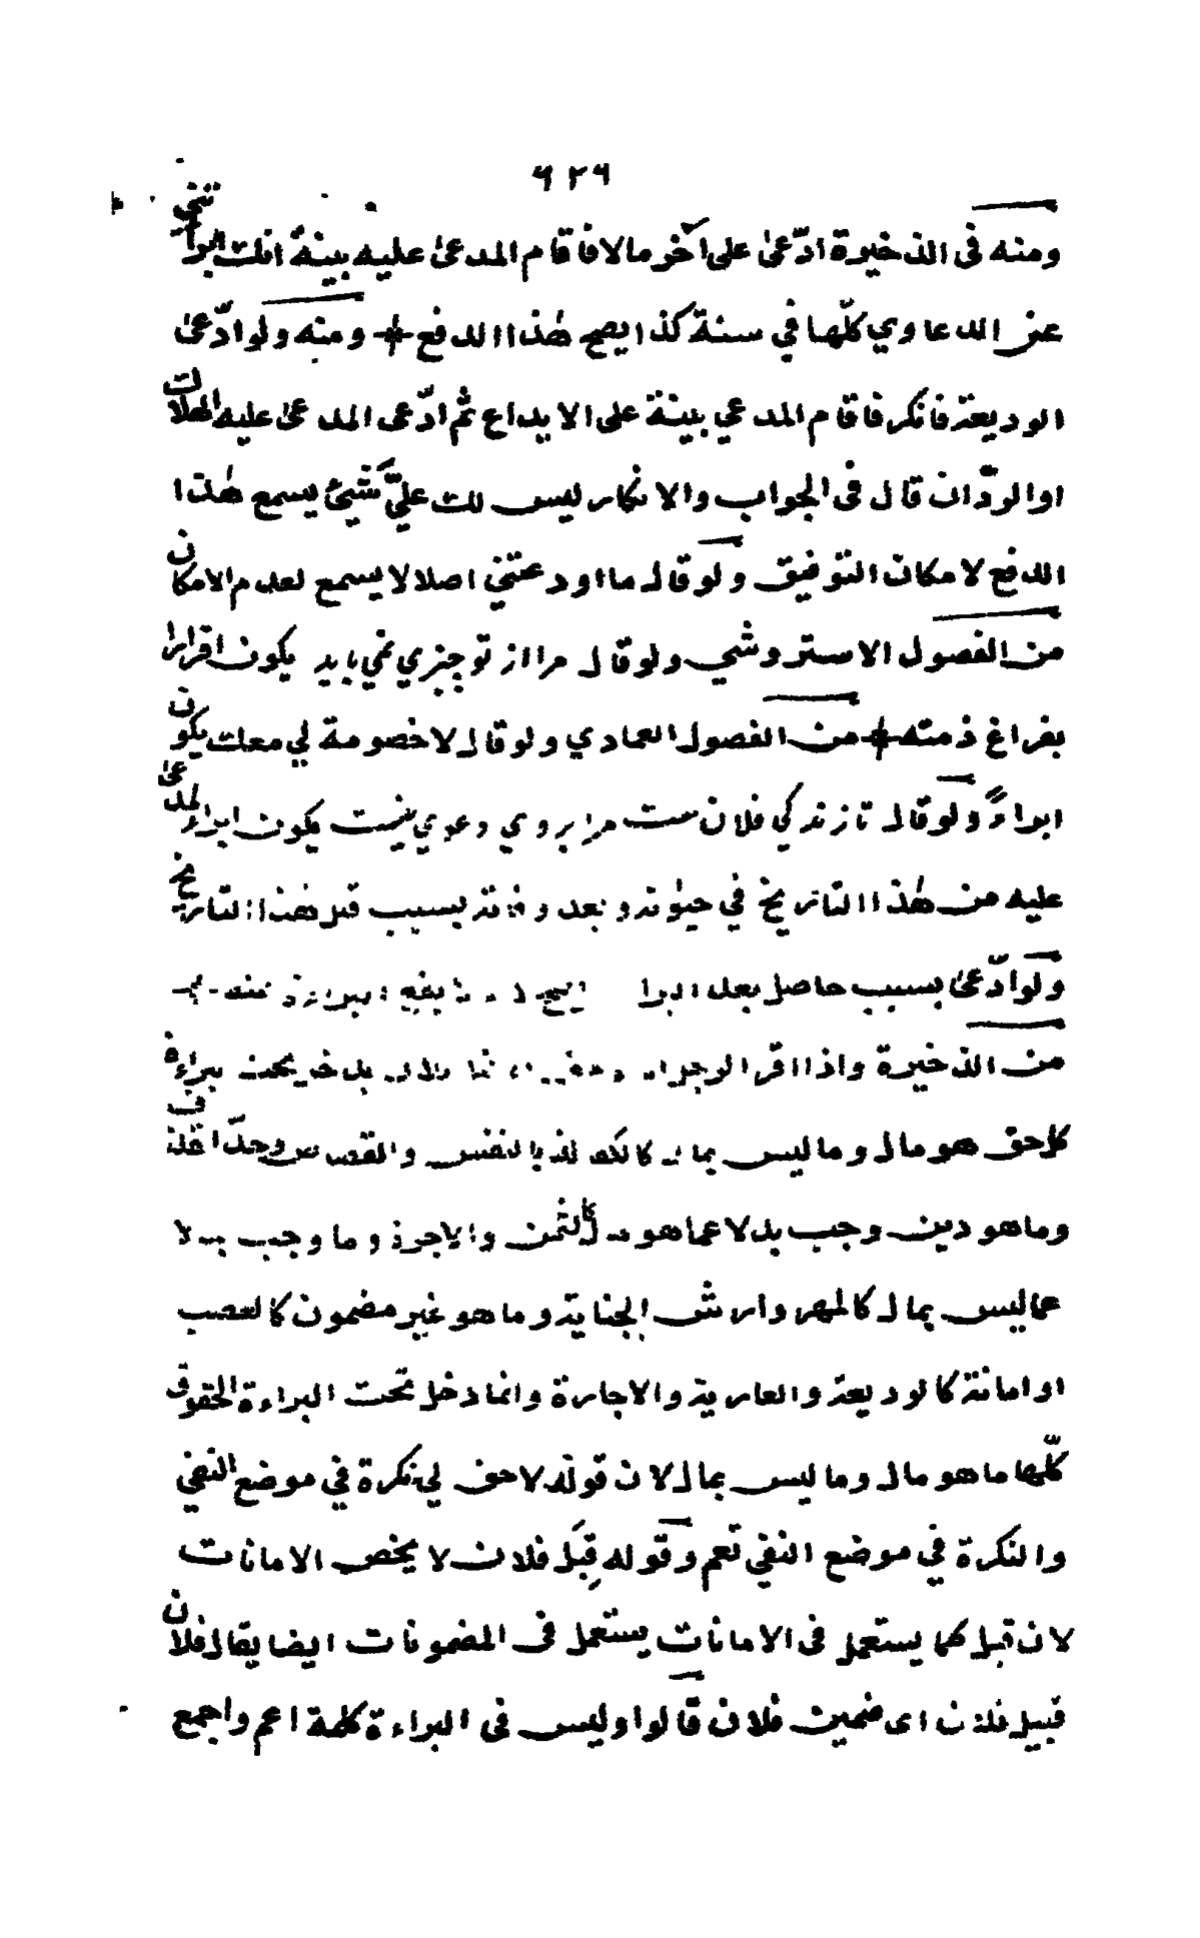 ٦٢٦
ومنه فى الذخيرة ادّعىٰ على آخر مالا فاقام المدعىٰ عليه بينةً انك ابرأتنى
عن الدعاوي كلّها في سنة كذا يصح هٰذا الدفع ومنه ولو ادّعىٰ
الوديعة فانكر فاقام المدعي بينة على الايداع ثم ادّعى المدعىٰ عليه الهلاك
او الردّ ان قال فى الجواب والانكار ليس لك عليَّ شئ يسمع هٰذا
الدفع لامكان التوفيق ولو قال ما اودعتني اصلا لا يسمع لعدم الامكان
من الفصول الاستروشي ولو قال مرا از تو چيزي نمي بايد يكون اقرارا
بفراغ ذمته من الفصول العمادي ولو قال لا خصومة لي معك يكون
ابراءً ولو قال تا زندكي فلان ست مرا بروي دعوي نيست يكون ابراء للمدعىٰ
عليه من هٰذا التاريخ في حيٰوته وبعد وفاته بسبب قبل هٰذا التاريخ
ولو ادّعىٰ بسبب حاصل بعد يصح
من الذخيرة واذا اقر الرجل يدخل تحت براءة
كل حق هو مال وما ليس بمال كالكفالة بالنفس والقصاص وحدّ القذف
وما هو دين وجب بدلا عما هو كالثمن والاجرة وما وجب بدلا
عما ليس بمال كالمهر وارش الجناية وما هو غير مضمون كالغصب
او امانة كالوديعة والعارية والاجارة وانما دخل تحت البراءة الحقوق
كلّها ما هو مال وما ليس بمال لان قوله لا حق لي نكرة في موضع النفي
والنكرة في موضع النفي تعم وقوله قِبَل فلان لا يخص الامانات
لان قبل كما يستعمل فى الامانات يستعمل فى المضمونات ايضا يقال فلان
قبيل فلان اى ضمين فلان قالوا وليس فى البراءة كلمة اعم واجمع